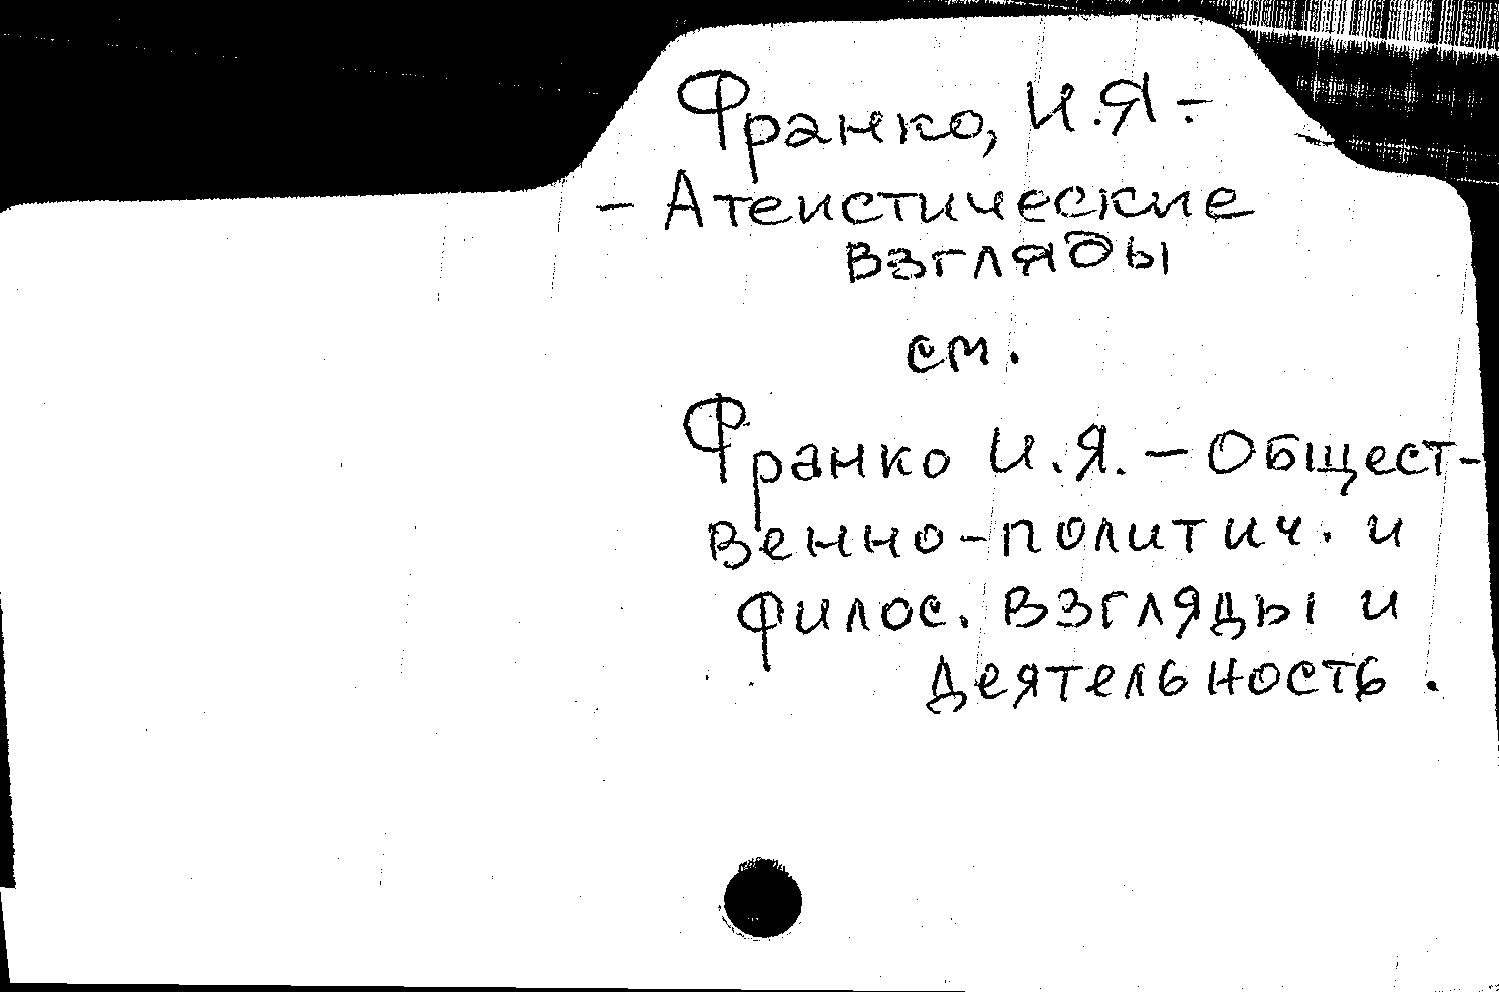 Франко, И.Я.-
- Атеистические
взгляды
см.
Франко И.Я. - Общест-
венно-политич. и
филос. взгляды и
деятельность.